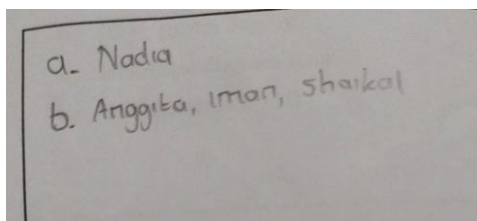 a. Nadia
b. Anggita, iman, shaikal